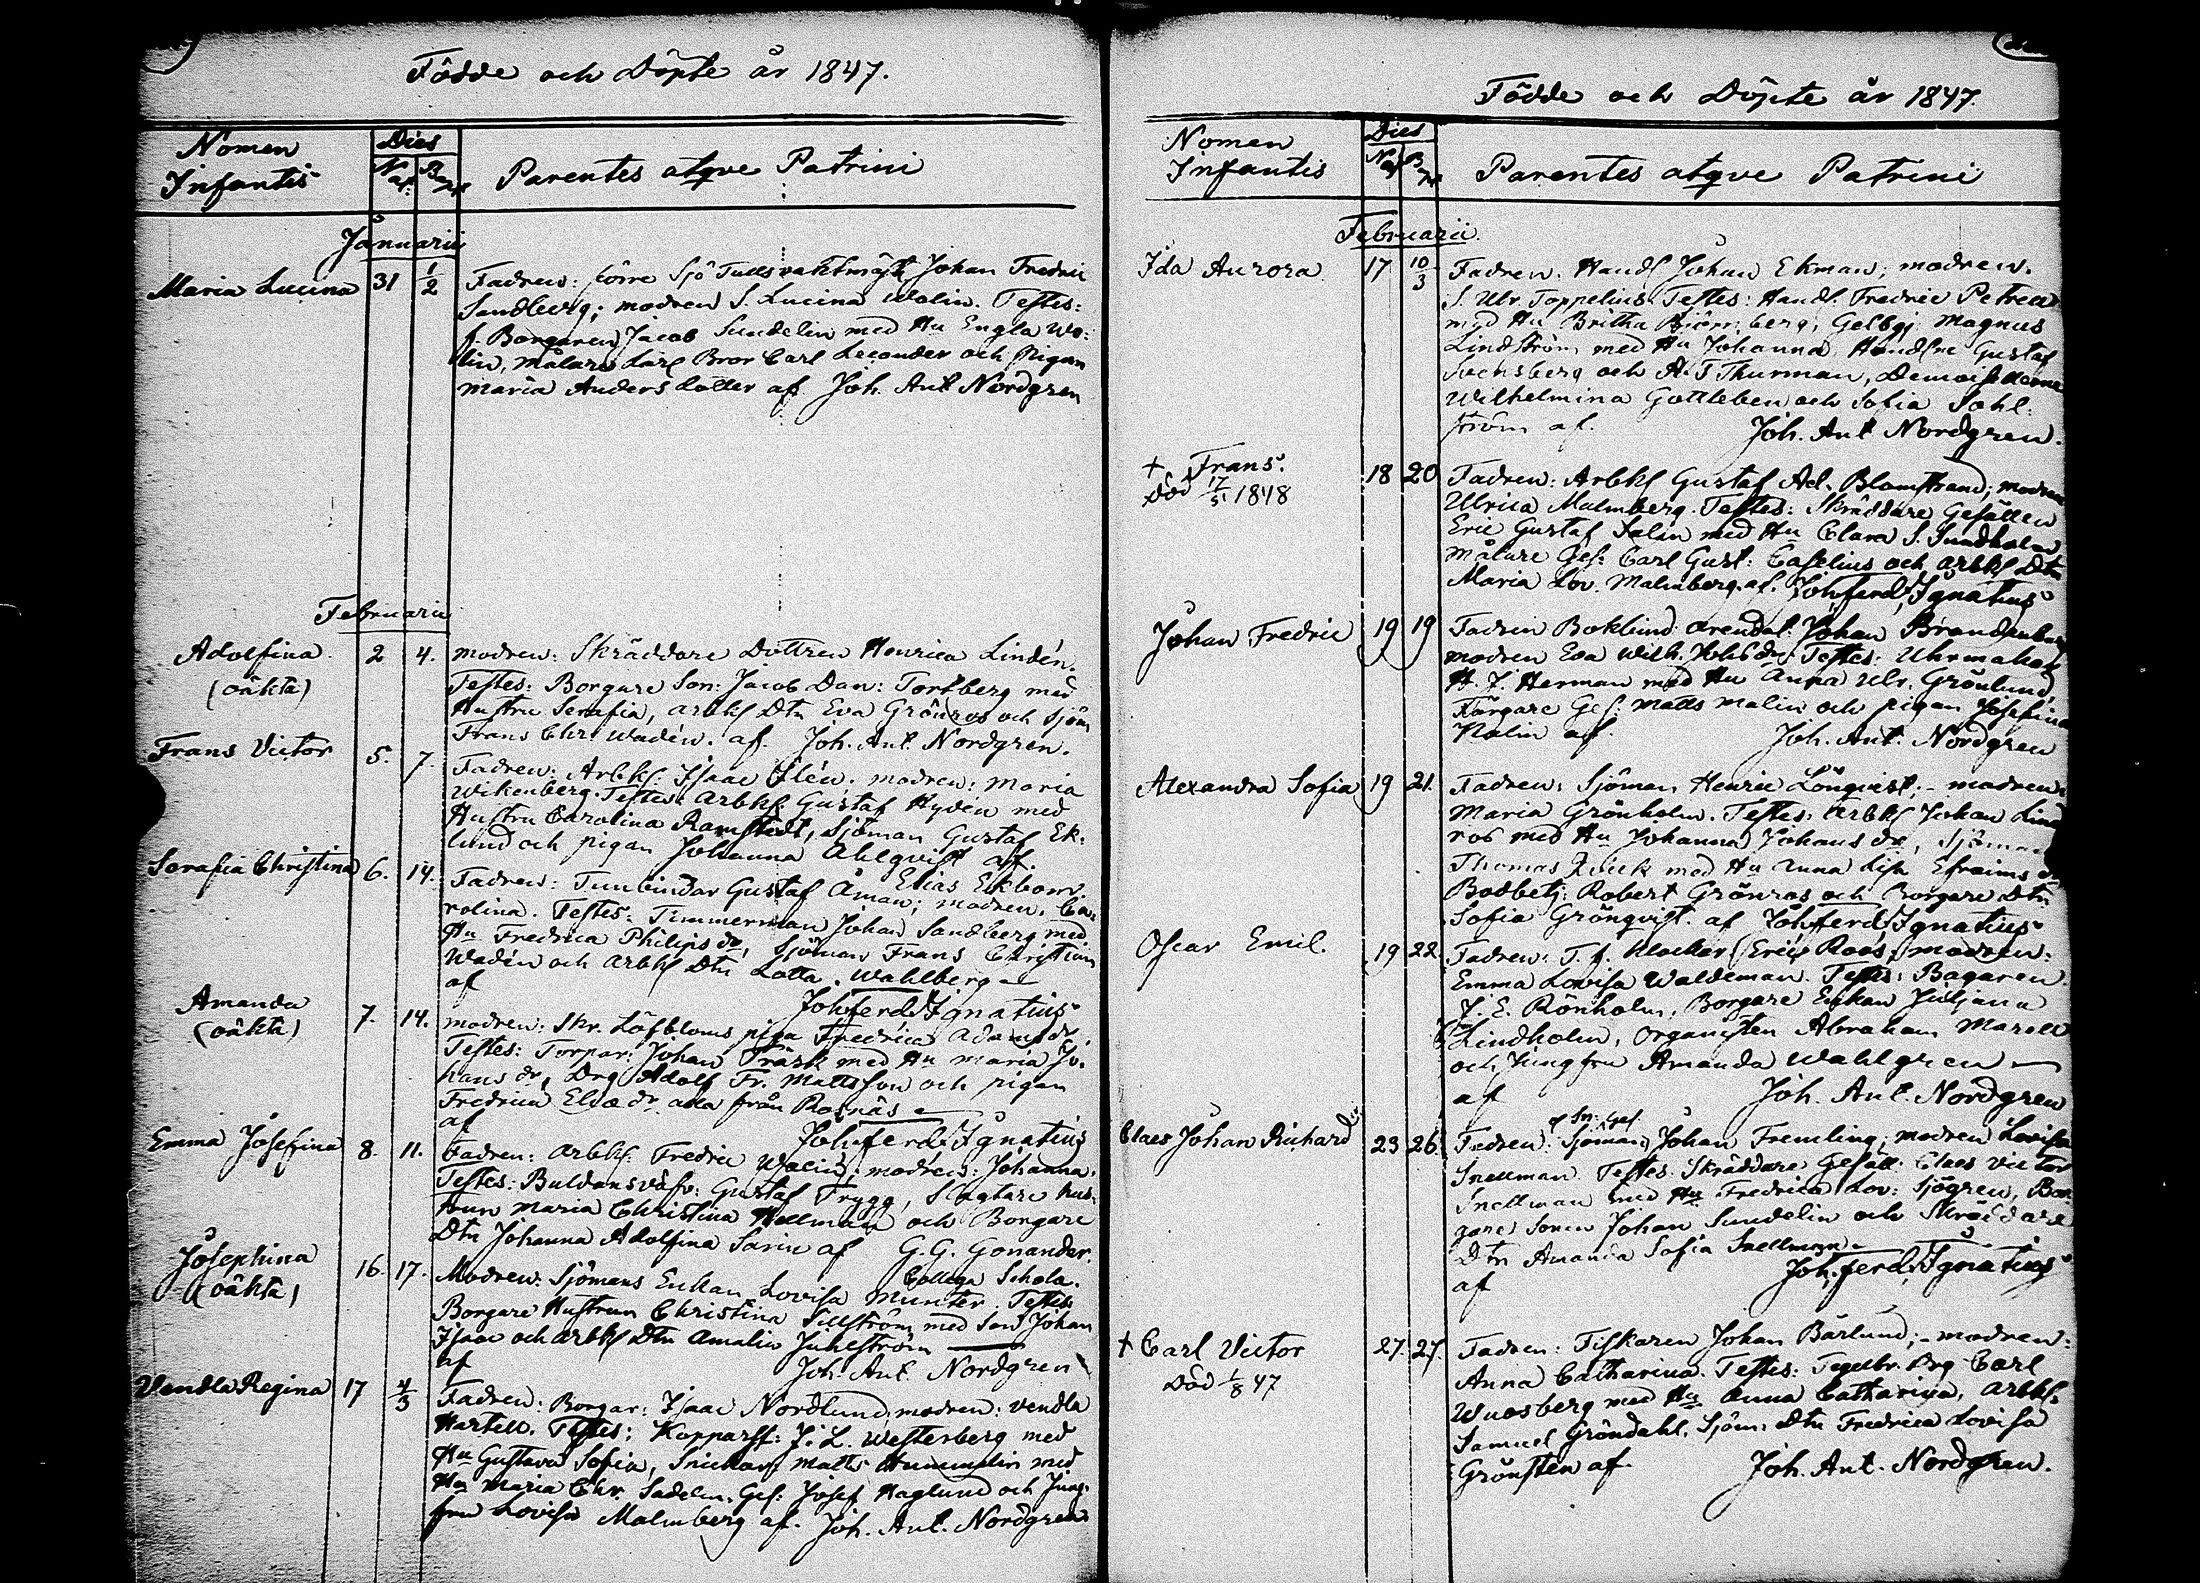 Födde och Döpte år 1847.
Nomen Infantis
Dies
Nat: Bapt
Parentes atqve Patrini
Januarii
Maria Lucina 31 1/2
Fadren: förre Sjö Tullsvaktmäst Johan Fredric
Sandberg; modren S. Lucina Walin. Testes:
f. Borgaren Jacob Sundelin med Hu Engla Wa-
lin, målare Lärl Bror Carl Lecander och pigan
Maria Anders dotter af Joh. Ant Nordgren
Februarii
Adolfina (oäkta) 2 4.
modren: Skräddare Dottren Henrica Lindén.
Testes: Borgare Son: Jacob Dan: Torkberg med
Hustru Serafia, arbks Dtn Eva Grönros och Sjöm
Frans Chr: Wadén. af. Joh. Ant. Nordgren.
Frans Victor 5. 7.
Fadren: Arbks. Isaac Flén; modren: Maria
Wikenberg. Testes: Arbks Gustaf Hydén med
Hustru Carolina Ramstedt, Sjöman Gustaf Ek-
lund och pigan Johanna Ahlqvist af.
Elias Ekbom.
Serafia Christina 6. 14.
Fadren: Tunbindar Gustaf Åman; modren: Ca-
rolina. Testes: Timmerman Johan Sandberg med
Hu Fredrica Philips dr, Sjöman Frans Christian
Wadén och Arbks Dtn Lotta Wahlberg
af Joh. ferd. Ignatius
Amanda (oäkta) 7. 14.
modren: Skr. Löfbloms piga Fredrica Adams dr.
Testes: Torpar: Johan Träsk med Hu Maria Jo-
hans dr, Drg Adolf Fr. Mattsson och pigan
Fredrica Elsæ dr alla från Rafnäs
af Joh. ferd. Ignatius
Emma Josefina 8. 11.
Fadren: Arbks. Fredric Walin; modren: Johanna.
Testes: Buldansväfv: Gustaf Trygg, Slagtare hus-
trun Maria Christina Hellman och Borgare
Dtn Johanna Adolfina Sarin af G. G. Gonander.
Collega Schola.
Josephina (oäkta) 16. 17.
Modren: Sjömans Enkan Lovisa Munter. Testes
Borgare Hustrun Christina Sillström med Son Johan
Isaac och arbks Dtn Amalia Juhlström
af Joh. Ant. Nordgren
Vendla Regina 17 4/3
Fadren: Borgar: Isaac Nordlund; modren: Vendla
Hartell. Testes: Kopparsl: J. L. Westerberg med
Hu Gustava Sofia, Snickar: Matts Hummelin med
Hu Maria Chr. Sadelm. Ges: Josef Haglund och Jung-
fru Lovisa Malmberg af. Joh. Ant. Nordgren
Födde och Döpte år 1847.
Nomen Infantis
Dies
Nat Bapt
Parentes atqve Patrini
Februarii.
Ida Aurora 17 10/3
Fadren. Handl Johan Ekman; modren.
S. Ulr. Toppelius. Testes: Handl. Fredric Petrell
med Hu Britha Björnberg, Gelbgj. Magnus
Lindström med Hu Johanna, Handlne Gustaf
Sachsberg och A. T Thurman, Demoisellerne
Wilhelmina Gottleben och Sofia Sahl-
ström af. Joh. Ant Nordgren.
+ Frans. 18 20
Död 17/5 1848
Fadren: Arbks Gustaf Ad. Blomstrand; modren
Ulrica Malmberg. Testes: Skräddare Gesällen
Eric Gustaf Salin med Hu Clara S. Sundholm
målare Ges: Carl Gust: Caselius och arbks Dtn
Maria Lov. Malmberg. af. Joh. ferd. Ignatius
Johan Fredric 19 19
Fadren Bokbind Johan Brandenburg
modren Eva Wilh. Johs dr. Testes: Uhrmakar
H. J. Herman med Hu Anna Ulr. Grönlund,
Färgare Ges: Matts Malin och pigan Josefina
Malin af. Joh. Ant. Nordgren
Alexandra Sofia 19 21.
Fadren: Sjöman Henric Lönqvist; - modren:
Maria Grönholm. Testes: Arbks Johan Lind
ros med Hu Johanna Johans dr, Sjöman
Thomas Qvick med Hu Anna Lisa Efraims dr
Bodbetj: Robert Grönros och Borgare Dtn
Sofia Grönqvist. af Joh. ferd. Ignatius
Oscar Emil. 19 22.
Fadren: T. f. Klockar Eric Roos; modren:
Emma Lovisa Waldeman. Testes: Bagaren
J. E. Rönholm, Borgare Enkan Juljana
Lindholm, Organisten Abraham Marell
och Jungfru Amanda Wahlgren
af Joh. Ant. Nordgren
Claes Johan Richard 23 26.
Fadren: Sjöman Johan Fremling; modren Lovisa
Snellman. Testes: Skräddare Gesäll: Claes Victor
Snellman med Hu Fredrica Lov: Sjögren, Bor-
gare Sonen Johan Sundelin och Skräddare
Dtn Amanda Sofia Snellman
af Joh. ferd. Ignatius
+ Carl Victor 27. 27.
Död 1/8 47
Fadren: Fiskaren Johan Bärlund; - modren:
Anna Catharina. Testes: Tegelbr. Drg Carl
Wuosberg med Hu Anna Catharina, Arbks.
Samuel Gröndahl, Sjöm: Dtn Fredrica Lovisa
Grönsten af. Joh. Ant. Nordgren.